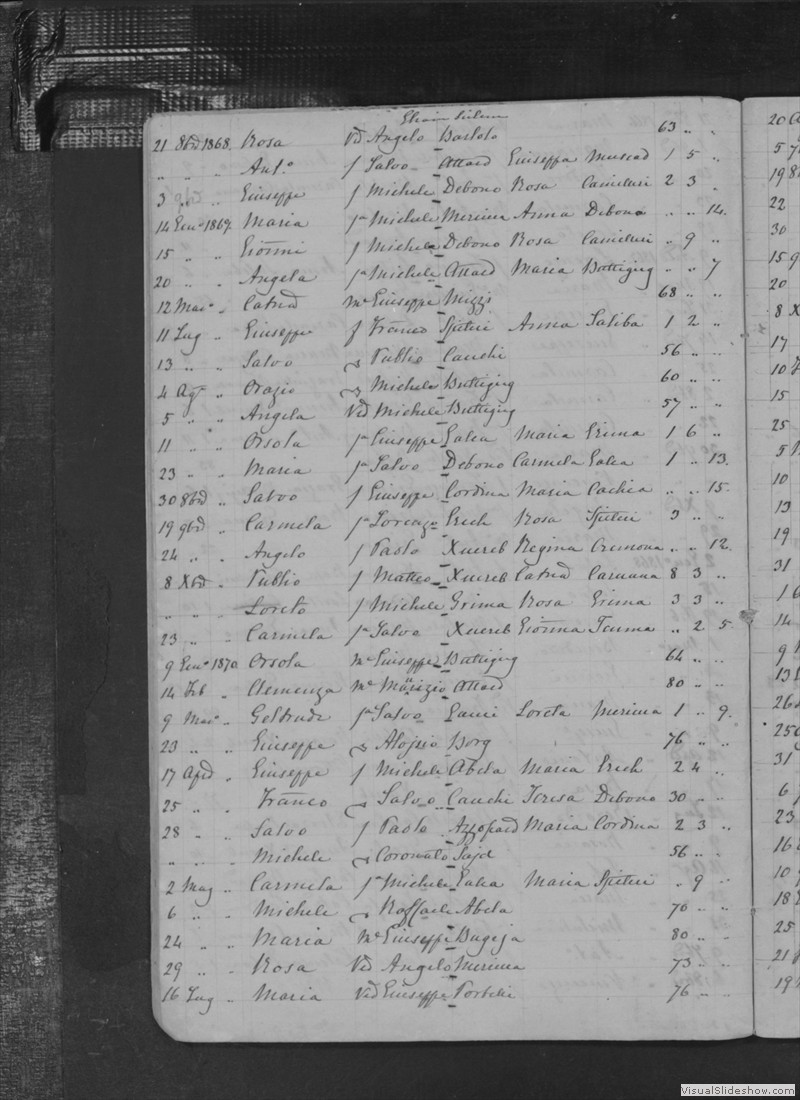 21 8bre 1868. Rosa Vid Angelo Bartolo 63 " "
" " " Ant.o f Salvo Attard Giuseppa Muscad 1 5 "
3 " " Giuseppe f Michele Debono Rosa Camilleri 2 3 "
14 Gen.o 1869. Maria fa Michele Mercieca Anna Debono " " 14.
15 " " Giovni f Michele Debono Rosa Camilleri " 9 "
20 " " Angela fa Michele Attard Maria Buttigieg " " 7
12 Mar.o " Catrina me Giuseppe Mizzi 68 " "
11 Lug " Giuseppe f Franco Spiteri Anna Saliba 1 2 "
13 " " Salvo Publio Cauchi 56 " "
4 Ag.to " Orazio Michele Buttigieg 60 " "
5 " " Angela Vid Michele Buttigieg 57 " "
11 " " Orsola fa Giuseppe Galea Maria Grima 1 6 "
23 " " Maria fa Salvo Debono Carmela Galea 1 " 13.
30 8bre " Salvo f Giuseppe Cordina Maria Cachia " " 15.
19 9bre " Carmela fa Lorenzo Grech Rosa Spiteri 3 " "
24 " " Angelo f Paolo Xuereb Regina Cremona " " 12.
8 Xbre " Publio f Matteo Xuereb Catrina Caruana 8 3 "
" " " Loreto f Michele Grima Rosa Grima 3 3 "
23 " " Carmela fa Salvo Xuereb Giovna Teuma " 2 5
9 Gen.o 1870. Orsola me Giuseppe Buttigieg 64 " "
14 Feb " Clemenza me Maurizio Attard 80 " "
9 Mar.o " Geltrude fa Salvo Gauci Loreta Mercieca 1 " 9.
23 " " Giuseppe Aloisio Borg 76 " "
17 Aple " Giuseppe f Michele Abela Maria Grech 2 4 "
25 " " Franco Salvo Cauchi Teresa Debono 30 " "
28 " " Salvo f Paolo Azzopard Maria Cordina 2 3 "
" " Michele Coronato Sajd 56 " "
2 Mag " Carmela fa Michele Galea Maria Spiteri " 9 "
6 " " Michele Raffaele Abela 70 " "
24 " " Maria me Giuseppe Bugeja 80 " "
29 " " Rosa Vid Angelo Mercieca 73 " "
16 Lug " Maria Vid Giuseppe Portelli 76 " "
20
5
19
22
30
15
20
8 X
17
10
15
25
5
10
13
19
31
1
14
9
13
26
25
31
6
23
16
10
18
25
21
19
VisualSlideshow.com